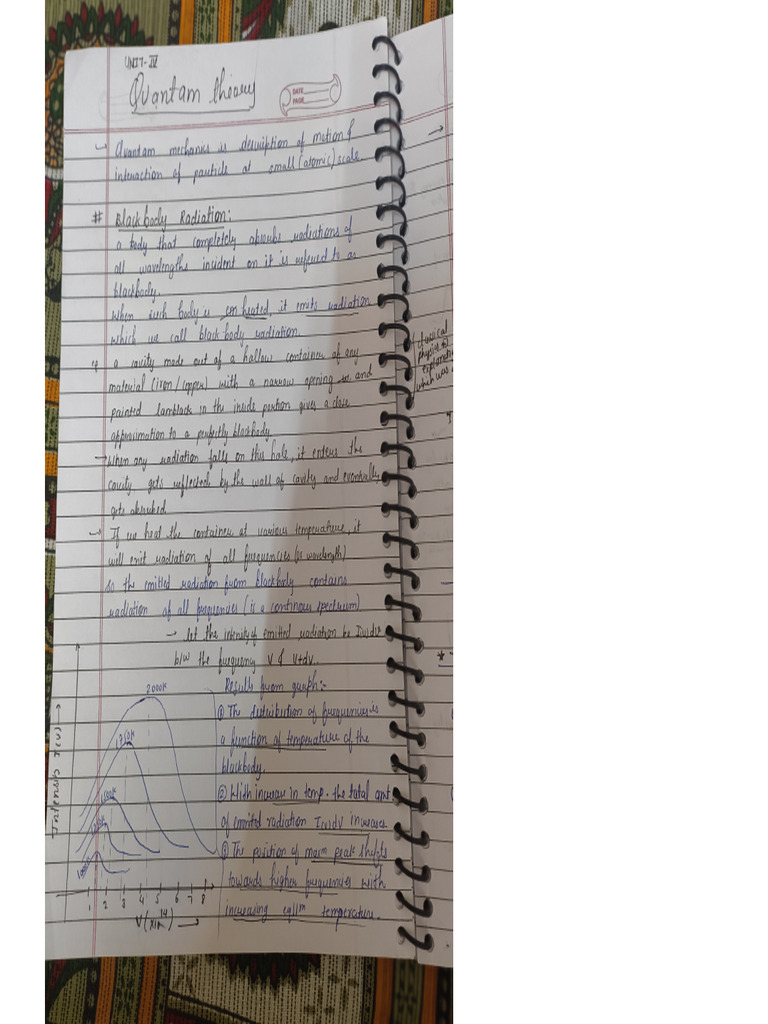 UNIT-IV
Quantam theory
DATE
PAGE
Quantam mechanics is description of motion &
interaction of particle at small (atomic) scale.
# Blackbody Radiation:
a body that completely absorbs radiations of
all wavelengths incident on it is refered to as
blackbody.
When such body is heated, it emits radiation
which we call black body radiation.
a cavity made out of a hollow container of any
material (iron/copper) with a narrow opening and
painted lamblack in the inside portion gives a close
approximation to a perfectly blackbody.
→ When any radiation falls on this hole, it enters the
cavity gets reflected by the wall of cavity and eventually
gets absorbed
→ If we heat the container at various temperature, it
will emit radiation of all frequencies (or wavelength)
so the emitted radiation from blackbody contains
radiation of all frequencies (is a continous spectrum)
→ let the intensity of emitted radiation be I(ν)dν
b/w the frequency ν & ν+dν.
Results from graph:-
① The distribution of frequencies is
a function of temperature of the
blackbody.
② With increase in temp. the total amt
of emitted radiation I(ν)dν increases
③ The position of maxm peak shifts
towards higher frequencies with
increasing eqlm temperature.
Intensity I(ν) →
2000K
1750K
1000K
1 2 3 4 5 6 7 8
ν(×10^14) →
classical
physics
explanation
which was